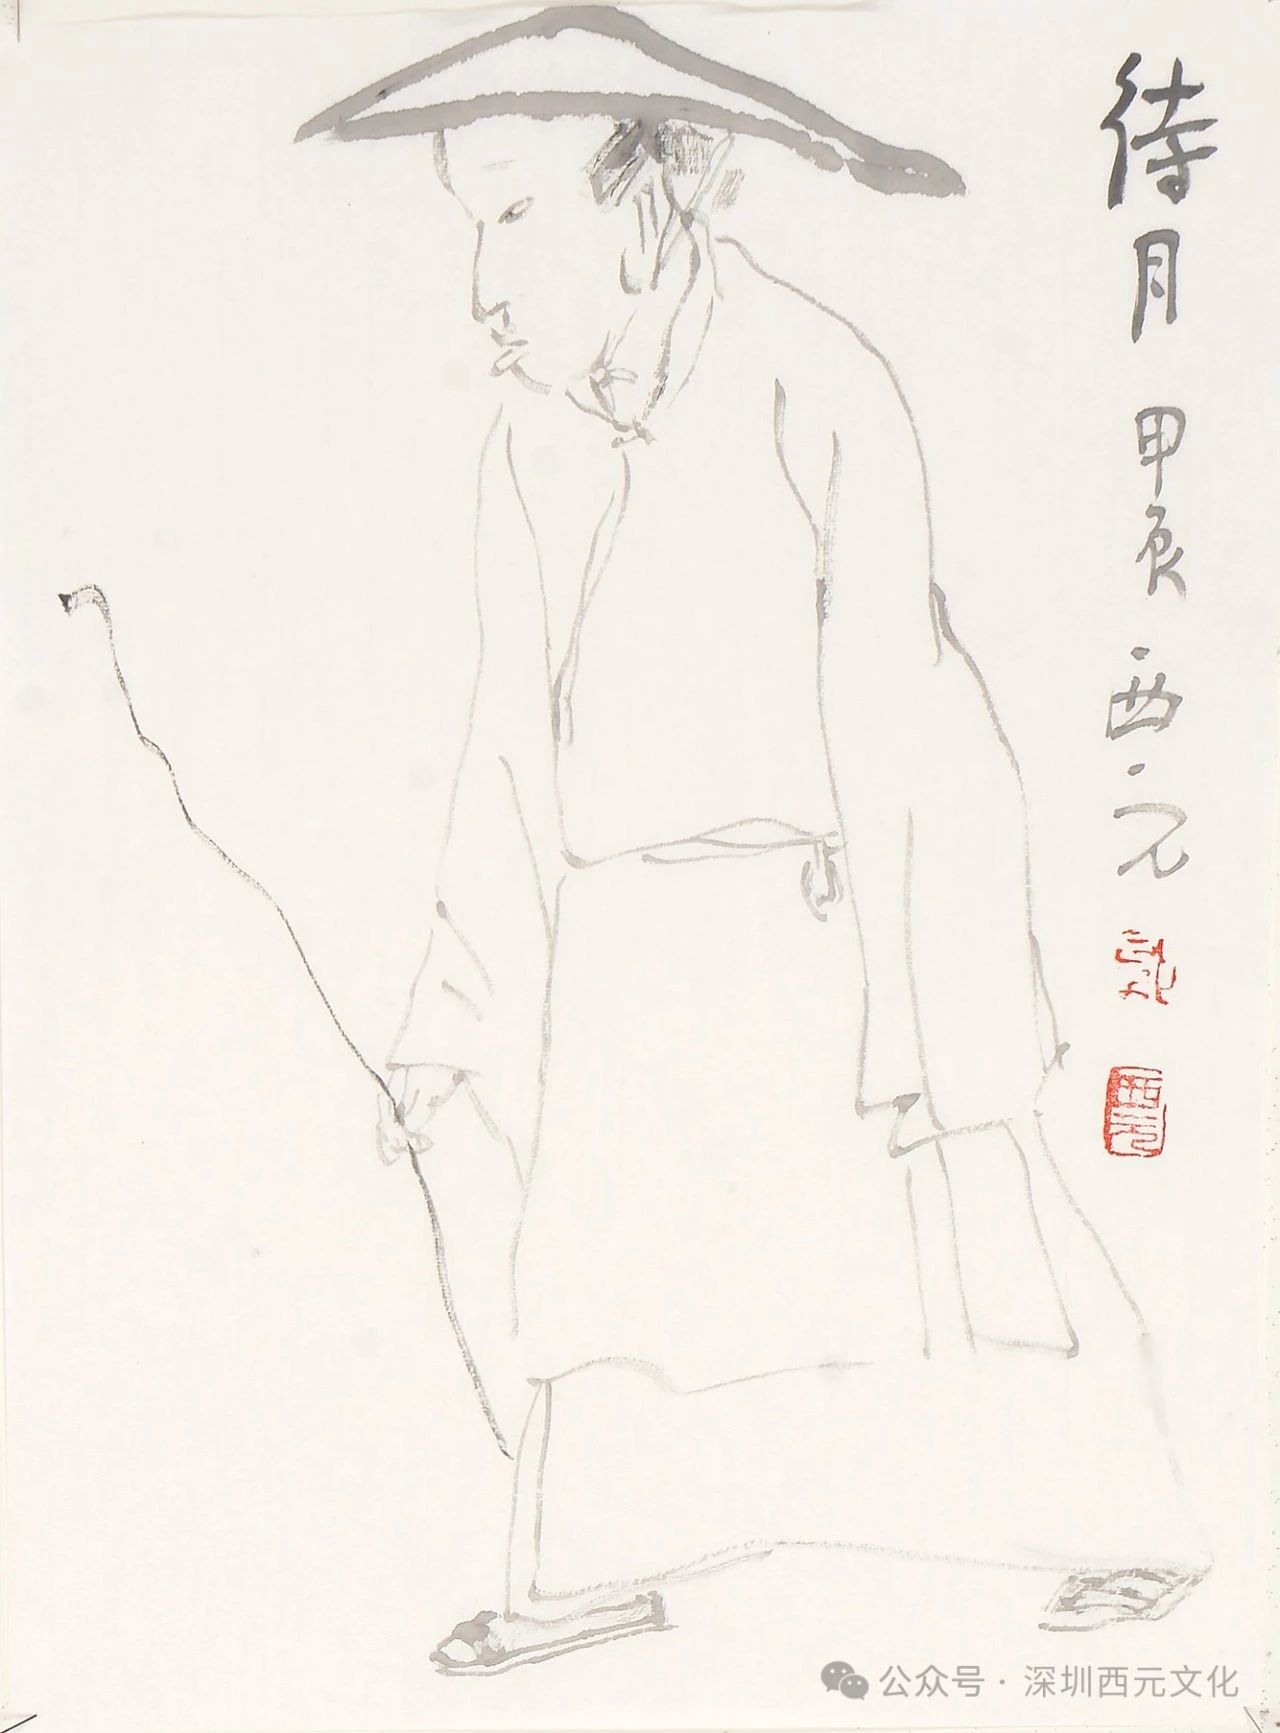 待月 甲辰 西元
西元
公众号·深圳西元文化